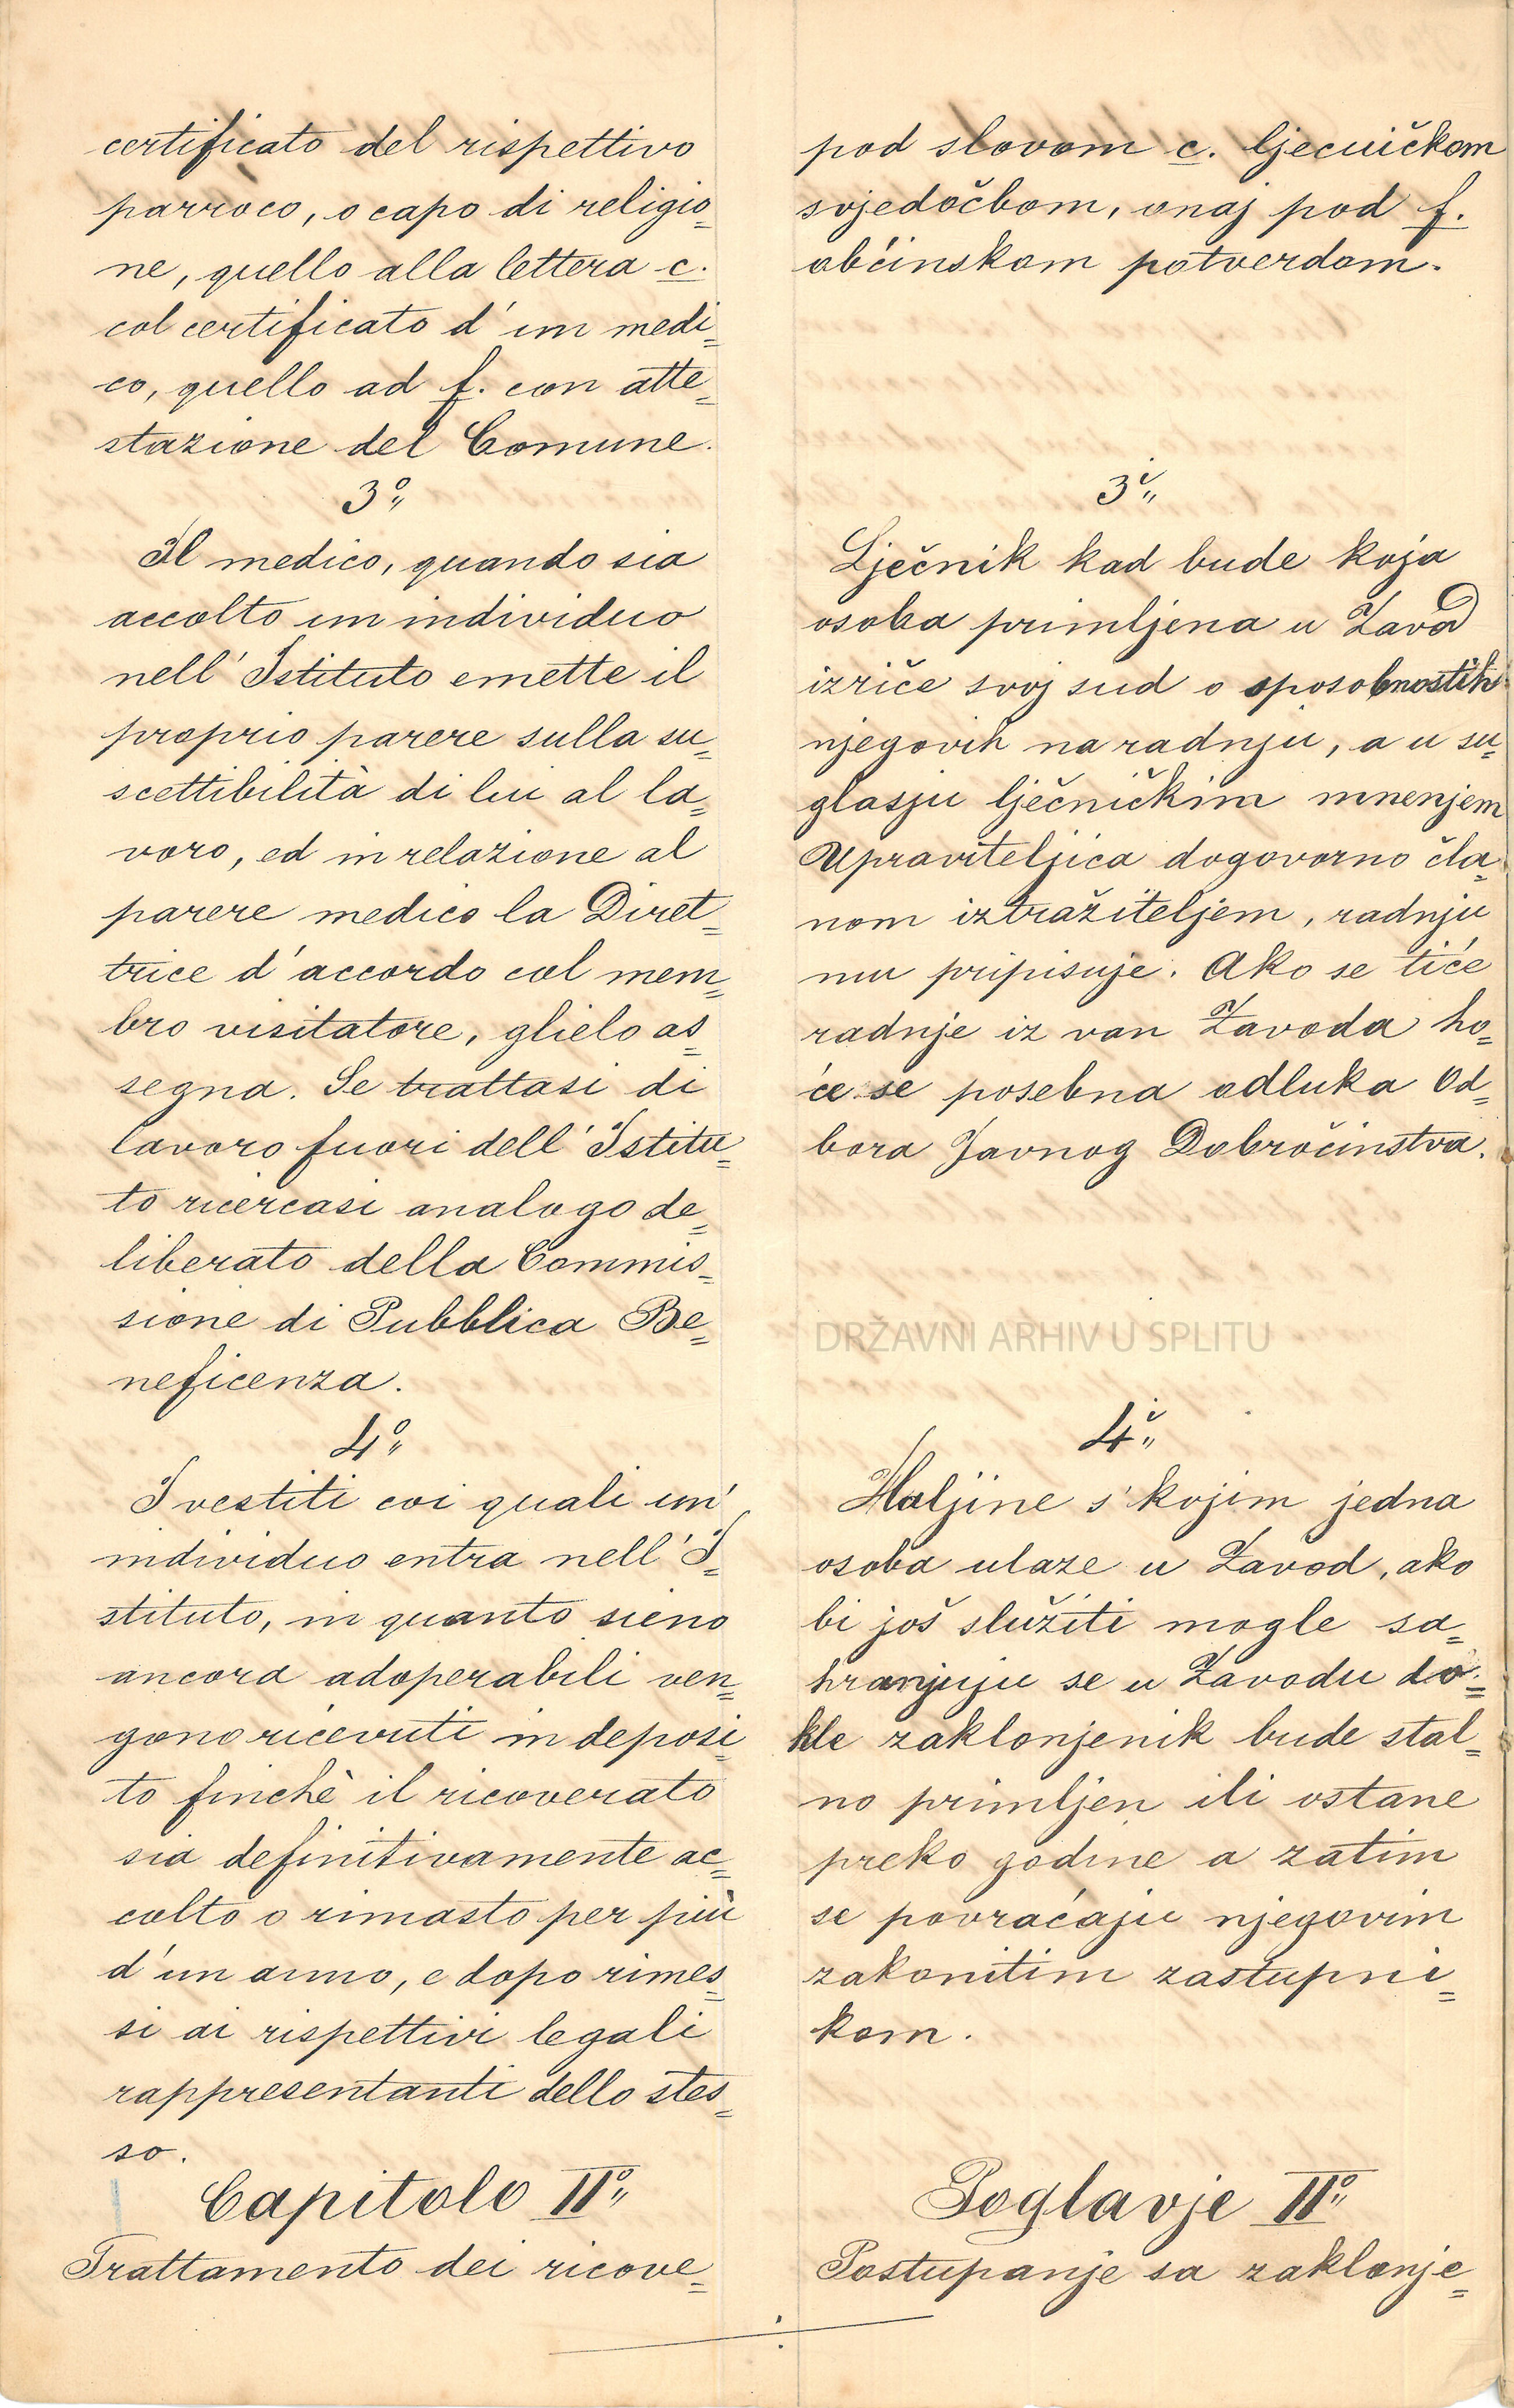 certificato del rispettivo
parroco, o capo di religio=
ne, quello alla lettera c.
col certificato d'un medi=
co, quello ad f. con atte=
stazione del Comune.
3º„
Il medico, quando sia
accolto un individuo
nell'Istituto emette il
proprio parere sulla su=
scettibilità di lui al la=
voro, ed in relazione al
parere medico la Diret=
trice d'accordo col mem=
bro visitatore, glielo as=
segna. Se trattasi di
lavoro fuori dell'Istitu=
to ricercasi analogo de=
liberato della Commis=
sione di Pubblica Be=
neficenza.
4º„
I vestiti coi quali un'
individuo entra nell'I=
stituto, in quanto sieno
ancora adoperabili ven=
gono ricevuti in deposi=
to finchè il ricoverato
sia definitivamente ac=
colto o rimasto per più
d'un anno, e dopo rimes=
si ai rispettivi legali
rappresentanti dello stes=
so.
Capitolo IIº„
Trattamento dei ricove=
pod slovom c. ljecničkom
svjedočbom, onaj pod f.
obćinskom potverdom.
3i„
Lječnik kad bude koja
osoba primljena u Zavod
izriče svoj sud o sposobnostih
njegovih na radnju, a u su=
glasju lječničkim mnenjem
Upraviteljica dogovorno čla=
nom iztražiteljem, radnju
mu pripisuje. Ako se tiće
radnje iz van Zavoda ho=
će se posebna odluka Od=
bora Javnog Dobročinstva.
DRŽAVNI ARHIV U SPLITU
4i„
Haljine s'kojim jedna
osoba ulaze u Zavod, ako
bi još služiti mogle sa=
hranjuju se u Zavodu do=
kle zaklonjenik bude stal=
no primljen ili ostane
preko godine a zatim
se povraćaju njegovim
zakonitim zastupni=
kom.
Poglavje IIº„
Postupanje sa zaklonje=